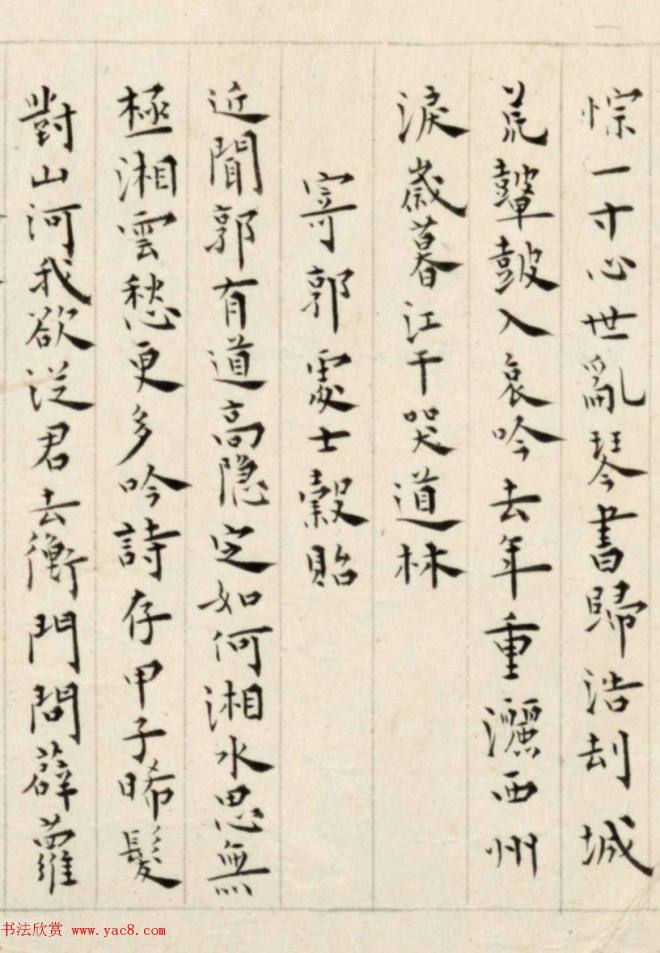 悰一寸心世亂琴書歸浩刦城
荒鼙鼓入哀吟去年重灑西州
淚歲暮江干哭道林
寄郭處士穀貽
近聞郭有道高隐定如何湘水思無
極湘雲愁更多吟詩存甲子晞髮
對山河我欲從君去衡門問薜蘿
书法欣赏 www.yac8.com